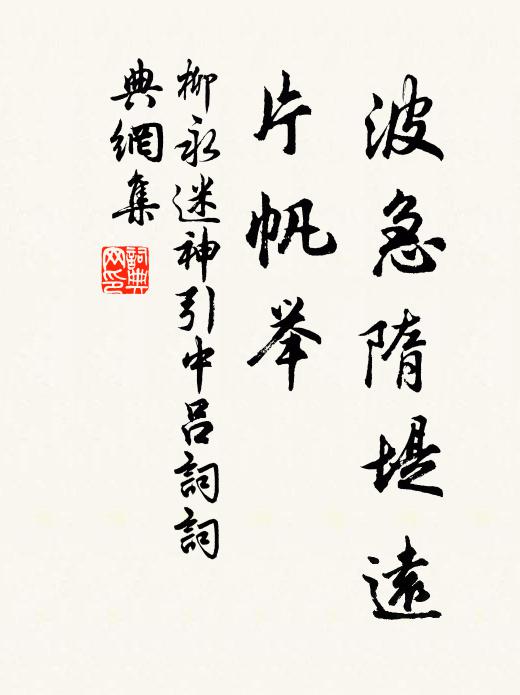 波急隋堤遠
片帆举
柳永迷神引中吕詞詞
典網集
詞典
网印